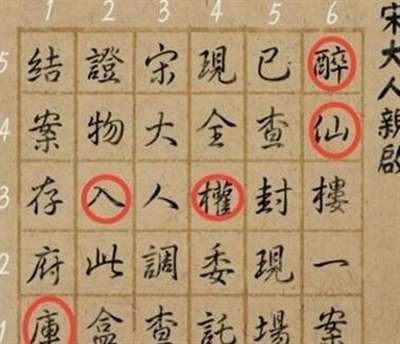 1 2 3 4 5 6
宋大人親啟
醉仙樓一案
已查封現場
現全權委託
宋大人調查
證物入此盒
結案存府庫
5 4 3 2 1